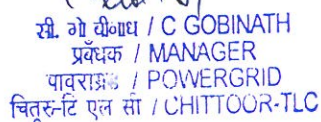 सी. गो बीनाथ / C GOBINATH
प्रबंधक / MANAGER
पावरग्रिड / POWERGRID
चित्तूर-टि एल सी / CHITTOOR-TLC